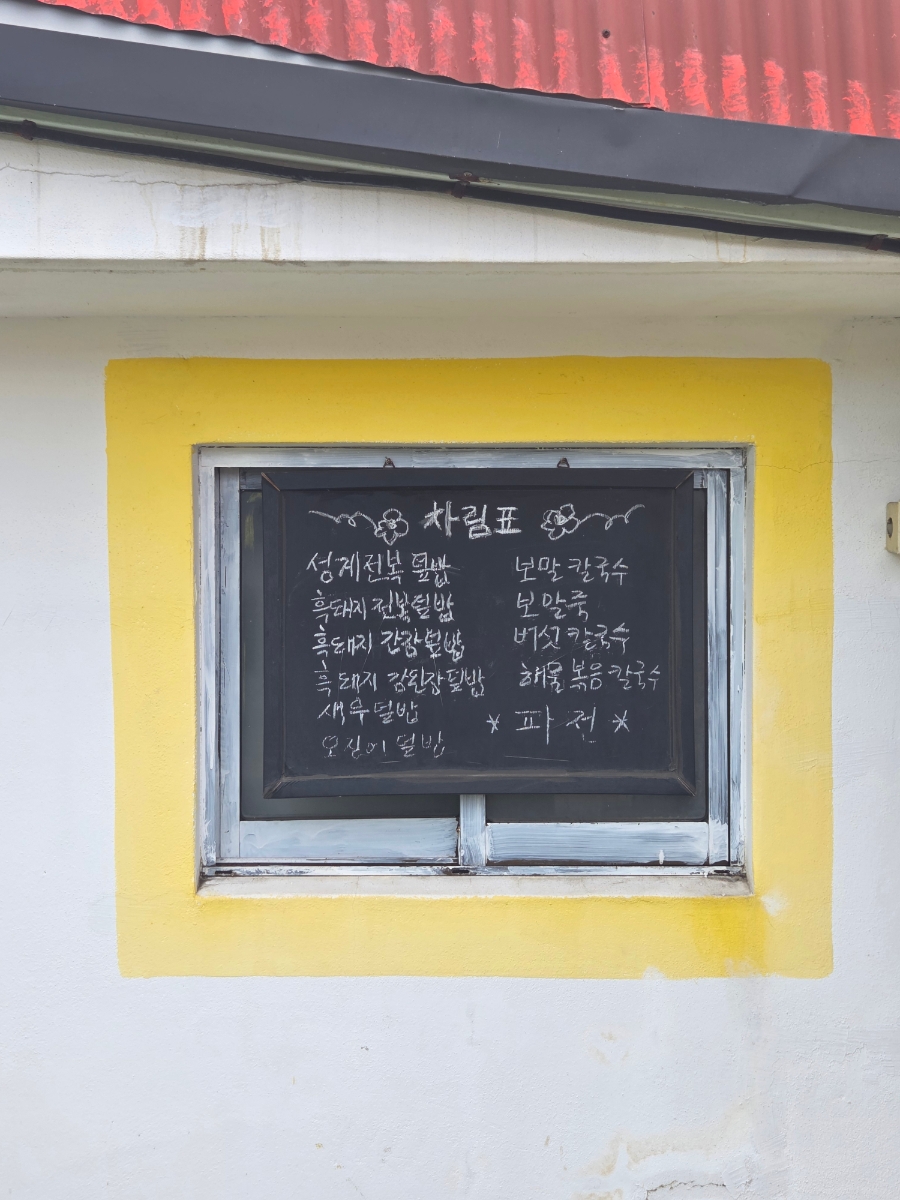 차림표
성게전복 덮밥
흑돼지 전복덮밥
흑돼지 간장덮밥
흑돼지 강된장덮밥
새우덮밥
오징어덮밥
보말칼국수
보말죽
버섯칼국수
해물볶음칼국수
* 파전 *